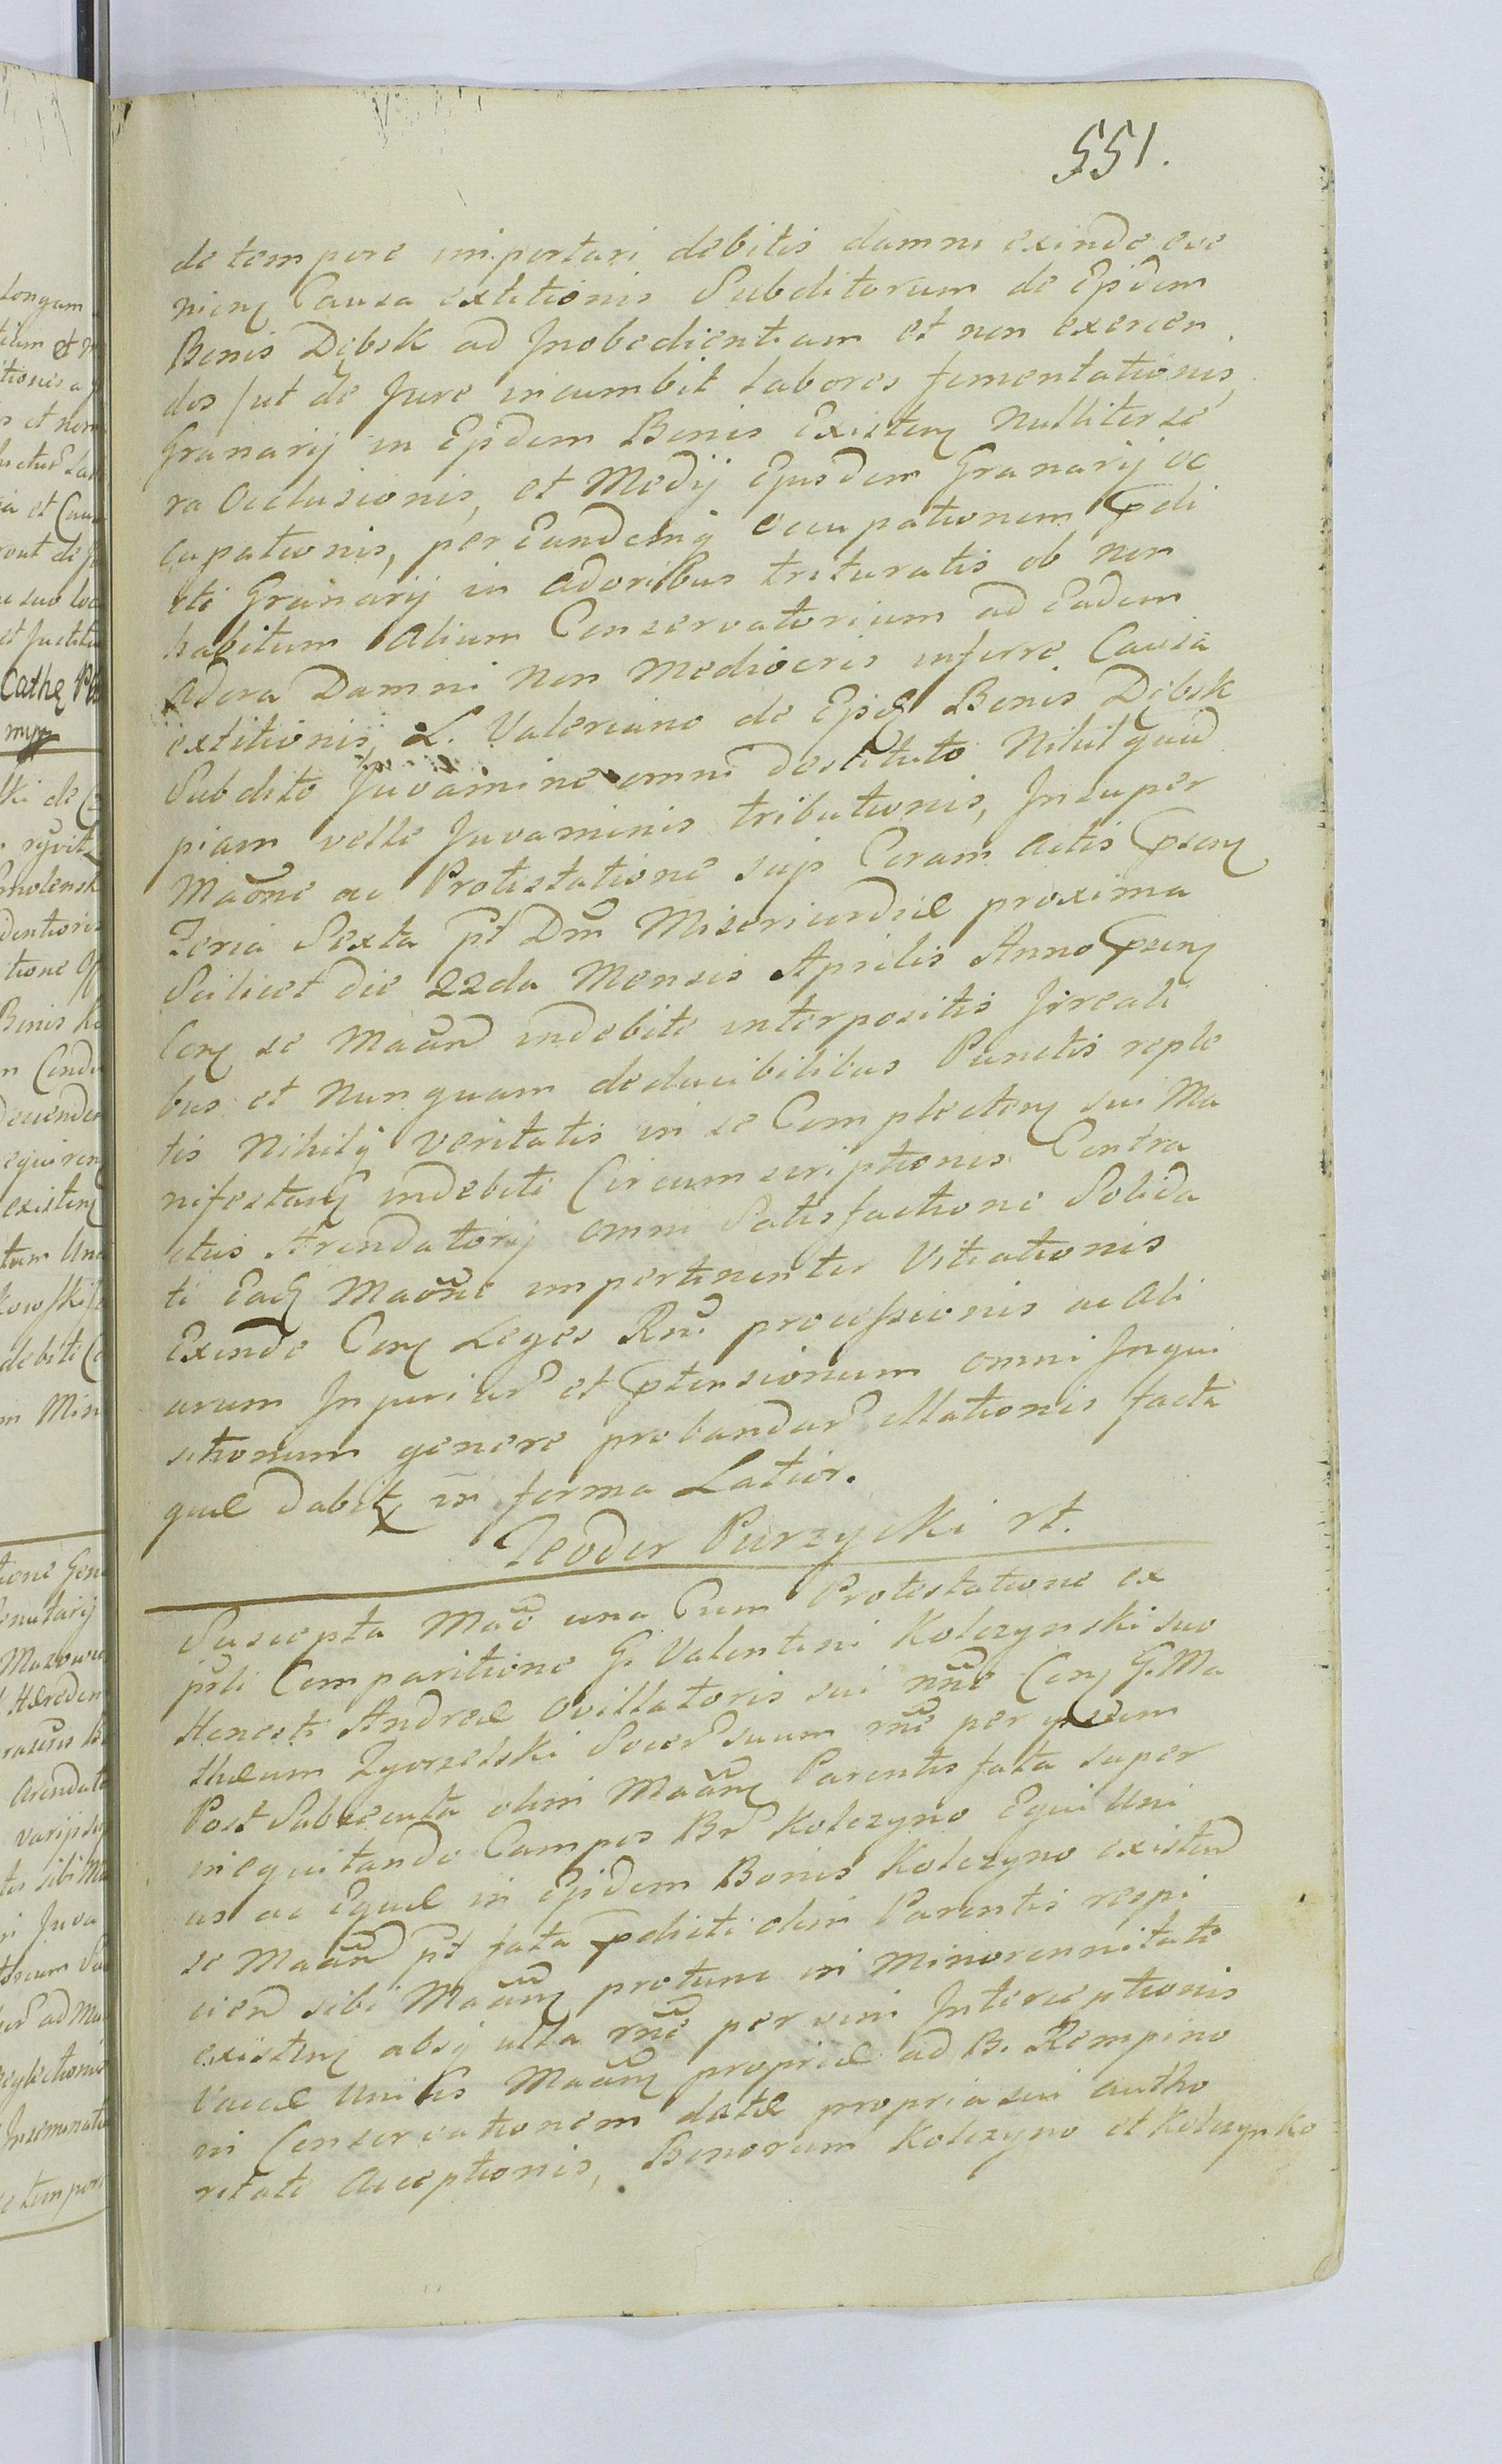 551.
de tempore importari debitis damni exinde eve
nien Causa extitionis Subditorum de Eisdem
Bonis Dębsk ad Inobedientiam et non exercen
dos /ut de Jure incumbit labores fomentationis,
Granarij in Eisdem Bonis Existen Nulliter se
ra Occlusionis, et Medij Ejusdem Granarij oc
cupationis, per Eandemq occupationem pdi
cti Granarij in adoribus trituratis ob non
habitum Alium Conservatorium ad Eadem
Adora Damni non mediocris inferre Causa
extitionis, L. Valeriano de Eisd Bonis Dębsk
Subdito Juvamine omni destituto Nihil quid
piam velle Juvaminis tributionis, Insuper
Maõne ac Protestatione sup Coram Actis psen
Feria Sexta pt Dm Misericordiæ proxima
Scilicet die 22da Mensis Aprilis Anno psen
Con se Maañ indebite interpositis Irreali
bus et nunquam deducibilibus Punctis reple
tis Nihilq veritatis in se Complecten sui Ma
nifestan indebite Circumscriptionis Contra
ctus Arendatorij omni Satisfactione Solida
ti Ead Maõne impertinenter Vitiationis
Exinde Con Leges Rni processionis ac Ali
arum Injuriar et ptensionum omni Inqui
sitionum genere probandar illationis facta
quæ dabit in forma Latior.
Teodor Purzycki rt.
Suscepta Mao una Cum Protestatione ex
psli Comparitione G. Valentini Kolczynski suo
Honesti Andreæ Ovillatoris sui nñe Con G. Ma
thæum Zgorzelski Socer suum rñe per ipsum
Post Subsecuta olim Maan Parentis fata super
inequitando Campos Br Kolczyno Equi Uni
us ac Equæ in Eisdem Bonis Kolczyno existen
se Maañ pt fata pdicti olim Parentis respi
cien sibi Maan protunc in Minorennitate
existen absq ulla rñe per vim Interceptionis
Vaccæ Unius Maan propriæ ad B. Rempino
in Conservationem datæ propria sui autho
ritate Acceptionis, Bonorum Kolczyno et Kolczynko